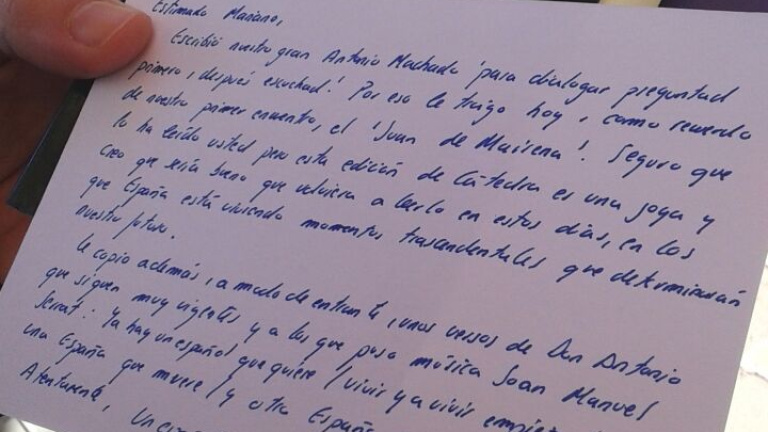 Estimado Mariano,
Escribió nuestro gran Antonio Machado 'para dialogar preguntad
primero, después escuchad'. Por eso le traigo hoy, como recuerdo
de nuestro primer encuentro, el 'Juan de Mairena'. Seguro que
lo ha leído usted pero esta edición de Cátedra es una joya y
creo que sería bueno que volviera a leerlo en estos días, en los
que España está viviendo momentos trascendentales que determinarán
nuestro futuro.
Le copio además, a modo de entrante, unos versos de Don Antonio
que siguen muy vigentes y a los que puso música Joan Manuel
Serrat: Ya hay un español que quiere / vivir y a vivir
una España que muere / y otra España
Atentamente,